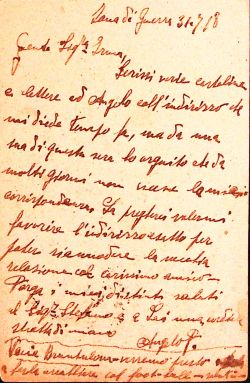 Zona di Guerra 31-7-18
Gent. Sig.ª Irma,
Scrissi varie cartoline
e lettere ad Angelo coll'indirizzo che
mi diede tempo fa, ma da una
sua di questa sera lo arguito che da
molti giorni non riceve la mia
corrispondenza. La pregherei volermi
favorire l'indirizzo esatto per
poter riannodare la nostra
relazione col carissimo amico.
Porga i miei distinti saluti
al Sig. Stefano, e a Lei una cordiale
stretta di mano
Angelo
presto
col foot-ball